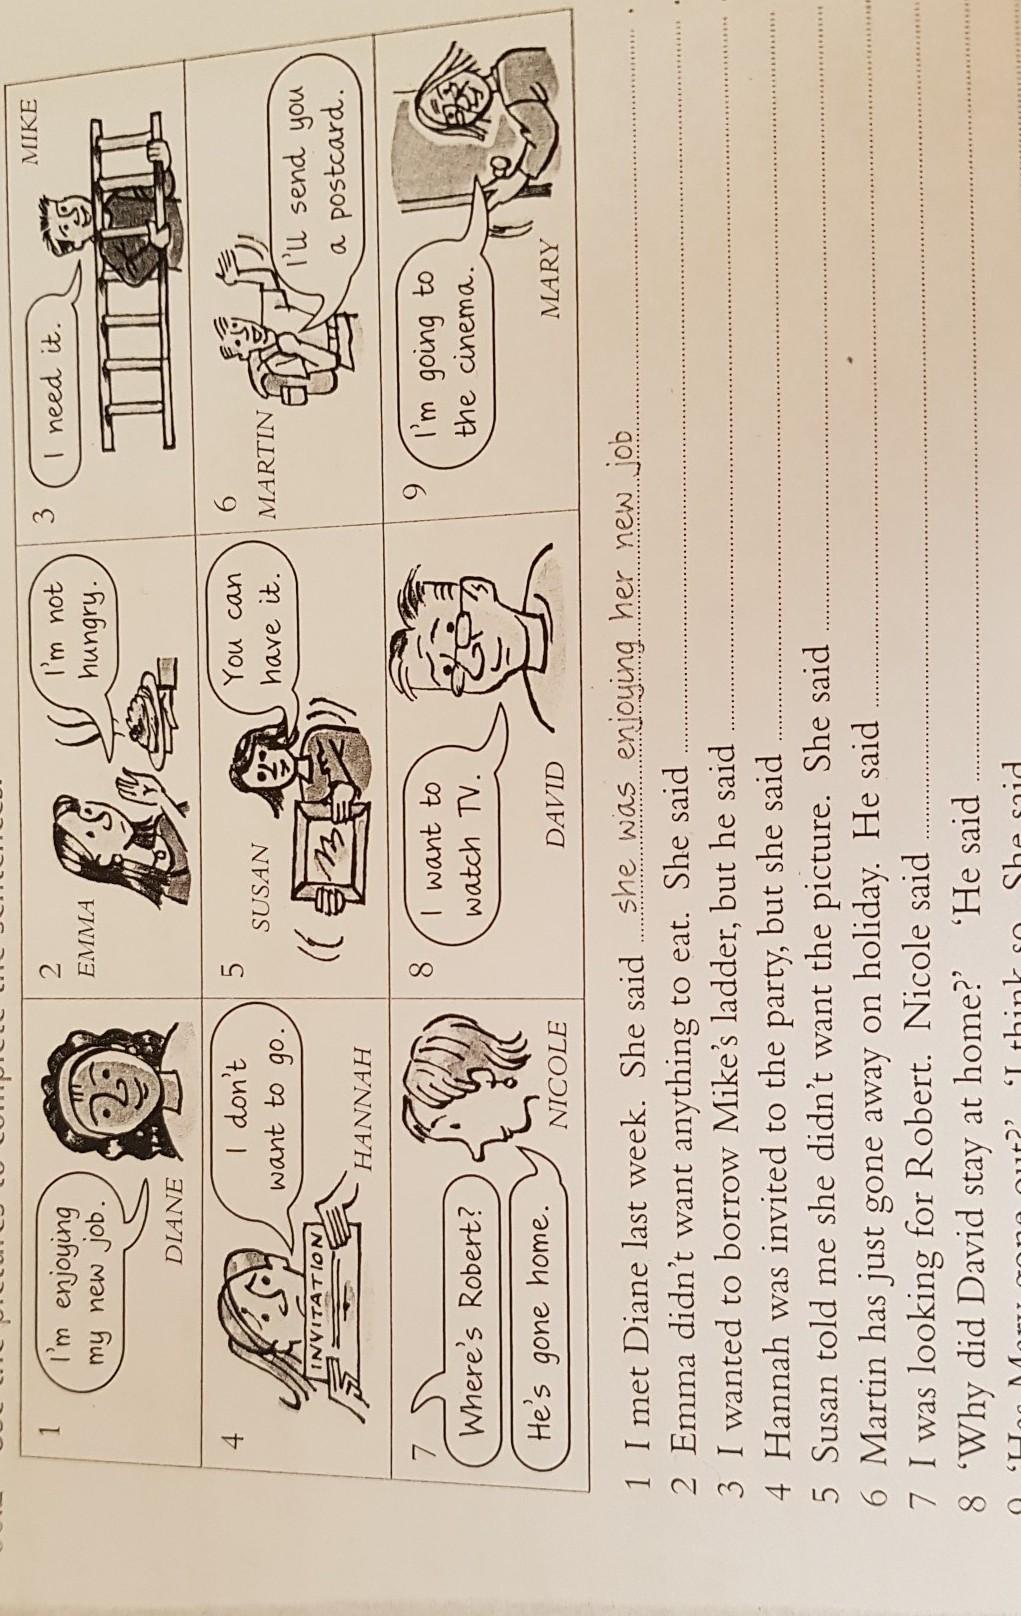 1
I'm enjoying
my new job.
DIANE
2
EMMA
I'm not
hungry.
3
I need it.
MIKE
4
I don't
want to go.
INVITATION
HANNAH
5
SUSAN
You can
have it.
6
MARTIN
I'll send you
a postcard.
7
Where's Robert?
He's gone home.
NICOLE
8
I want to
watch TV.
DAVID
9
I'm going to
the cinema.
MARY
1 I met Diane last week. She said she was enjoying her new job
2 Emma didn't want anything to eat. She said
3 I wanted to borrow Mike's ladder, but he said
4 Hannah was invited to the party, but she said
5 Susan told me she didn't want the picture. She said
6 Martin has just gone away on holiday. He said
7 I was looking for Robert. Nicole said
8 'Why did David stay at home?' 'He said
9 'Has Mary gone out?' 'I think so. She said